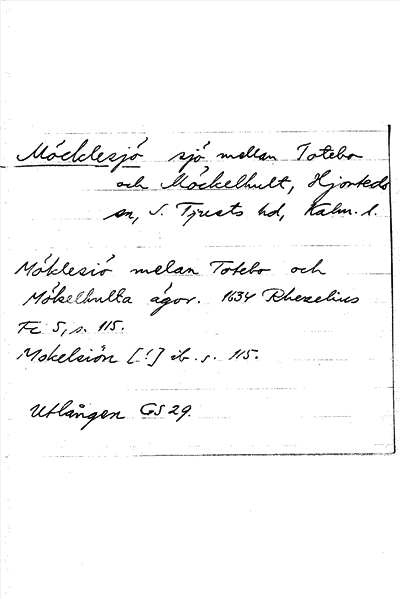 Möcklesjö sjö mellan Totebo
och Möckelhult, Hjorteds
sn, S. Tjusts hd, Kalm. l.
Möklesiö melan Totebo och
Mökelhulta ägor. 1634 Rhezelius
Fc 5, s. 115.
Mökelsiön [!] ib. s. 115.
Utlången GS 29.